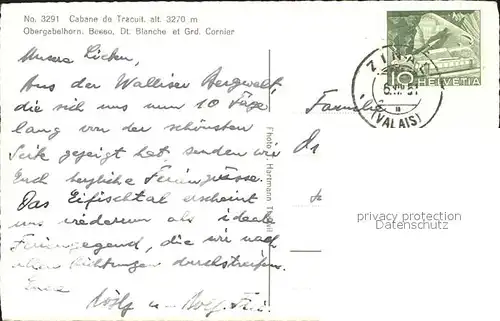 No. 3291 Cabane de Tracuit. alt. 3270 m
Obergabelhorn. Besso, Dt. Blanche et Grd. Cornier
Unsere Lieben,
Aus der Walliser Bergwelt,
die sich uns nun 10 Tage
lang von der schönsten
Seite gezeigt hat senden wir
Euch herzliche Feriengrüsse.
Das Eifischtal erscheint
uns wiederum als ideale
Feriengegend, die wir nach
allen Richtungen durchstreifen.
Eure
u.
Photo J. Hartmann
10 HELVETIA
ZINAL
(VALAIS)
Familie
privacy protection
Datenschutz